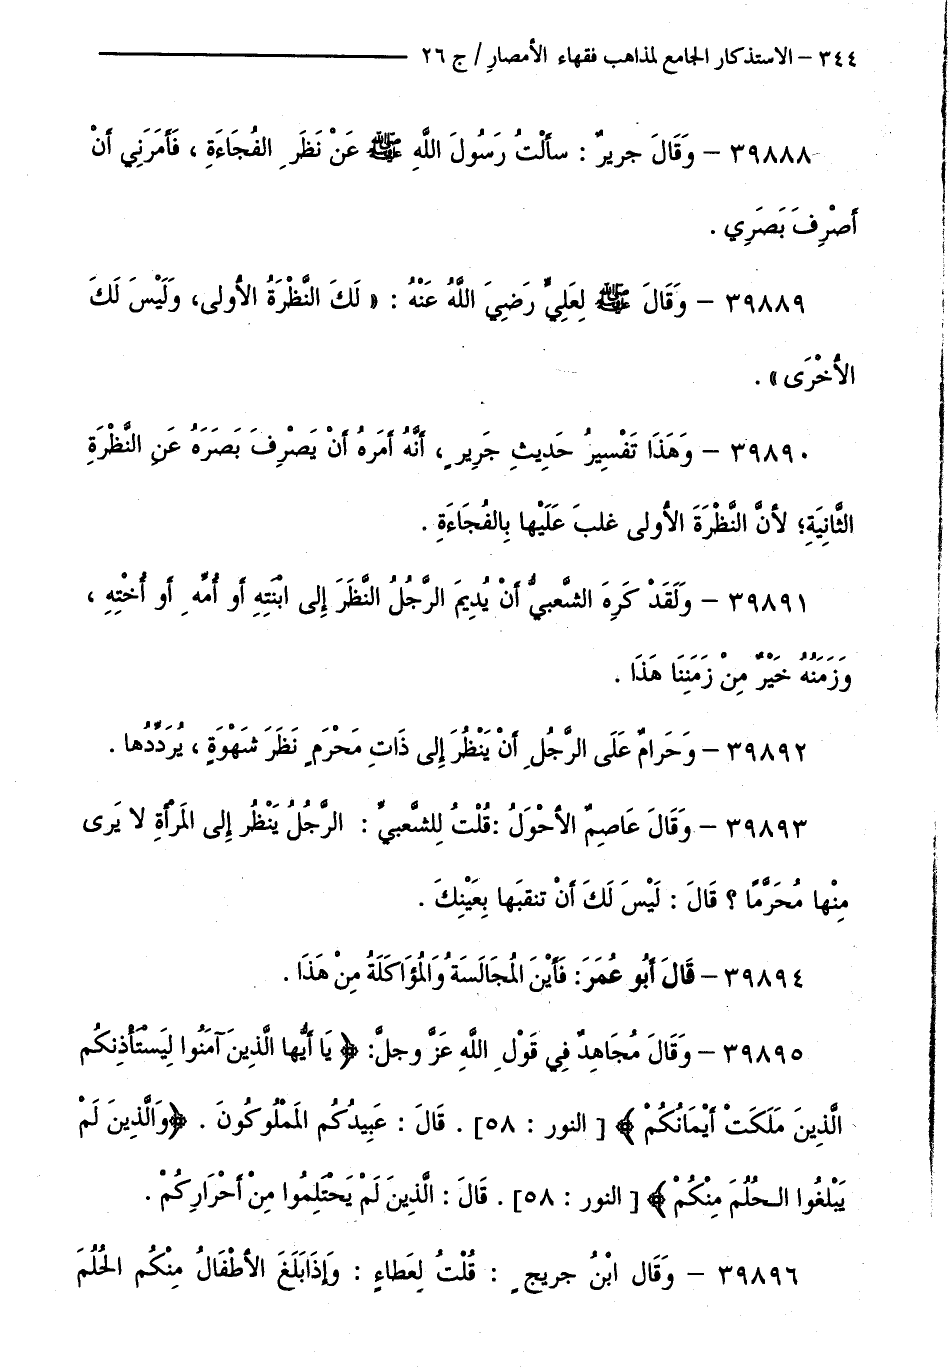 ٣٤٤ – الاستذكار الجامع لمذاهب فقهاء الأمصار / ج ٢٦
٣٩٨٨٨ – وَقَالَ جريرٌ : سألْتُ رَسُولَ اللَّهِ ﷺ عَنْ نَظَرِ الفُجَاءَةِ ، فَأَمَرَنِي أَنْ
أَصْرِفَ بَصَرِي .
٣٩٨٨٩ – وَقَالَ ﷺ لِعَلِيٍّ رَضِيَ اللَّهُ عَنْهُ : « لَكَ النَّظْرَةُ الأُولى، وَلَيْسَ لَكَ
الأُخْرَى» .
٣٩٨٩٠ – وَهَذَا تَفْسِيرُ حَدِيثِ جَرِيرٍ ، أَنَّهُ أَمَرَهُ أَنْ يَصْرِفَ بَصَرَهُ عَنِ النَّظْرَةِ
الثَّانِيَةِ؛ لأَنَّ النَّظْرَةَ الأُولى غلبَ عَلَيْها بِالفُجَاءَةِ .
٣٩٨٩١ – وَلَقَدْ كَرِهَ الشَّعبيُّ أَنْ يُدِيمَ الرَّجُلُ النَّظَرَ إِلى ابْنَتِهِ أو أُمِّهِ أو أُخْتِهِ ،
وَزَمَنُهُ خَيْرٌ مِنْ زَمَنِنَا هَذَا .
٣٩٨٩٢ – وَحَرامٌ عَلَى الرَّجُلِ أَنْ يَنْظُرَ إِلى ذَاتِ مَحْرَمٍ نَظَرَ شَهْوَةٍ ، يُرَدِّدُها .
٣٩٨٩٣ – وَقَالَ عَاصِمٌ الأَحْوَلُ :قُلْتُ لِلشَّعبيِّ : الرَّجُلُ يَنْظُر إِلى المَرْأَةِ لا يَرى
مِنْها مُحَرَّمًا ؟ قالَ : لَيْسَ لَكَ أَنْ تنقبَها بِعَيْنِكَ .
٣٩٨٩٤ – قَالَ أَبُو عُمَرَ: فَأَيْنَ المُجَالَسَةُ وَالمُؤَاكَلَةُ مِنْ هَذَا .
٣٩٨٩٥ – وَقَالَ مُجَاهِدٌ فِي قَوْلِ اللَّهِ عَزَّ وجلَّ: ﴿ يَا أَيُّها الَّذِينَ آمَنُوا لِيَسْتَأْذِنكُم
الَّذِينَ مَلَكَتْ أَيْمَانُكُمْ ﴾ [ النور : ٥٨] . قَالَ : عَبِيدُكُم المَمْلُوكُونَ . ﴿وَالَّذِينَ لَمْ
يَبْلغُوا الـحُلُمَ مِنْكُمْ ﴾ [ النور : ٥٨] . قَالَ : الَّذِينَ لَمْ يَحْتَلِمُوا مِنْ أَحْرَارِكُمْ .
٣٩٨٩٦ – وَقَال ابْنُ جريجٍ : قُلْتُ لِعَطاءٍ : وَإِذَابَلَغَ الأَطْفَالُ مِنْكُم الحُلُمَ